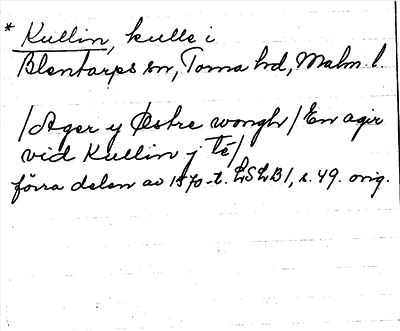 * Kullin, kulle i
Blentarps sn, Torna hd, Malm. l.
/Ager y Østre wongh/ En agir
vid Kullin j té/
förra delen av 1570-t. LSLB1, s. 49. orig.